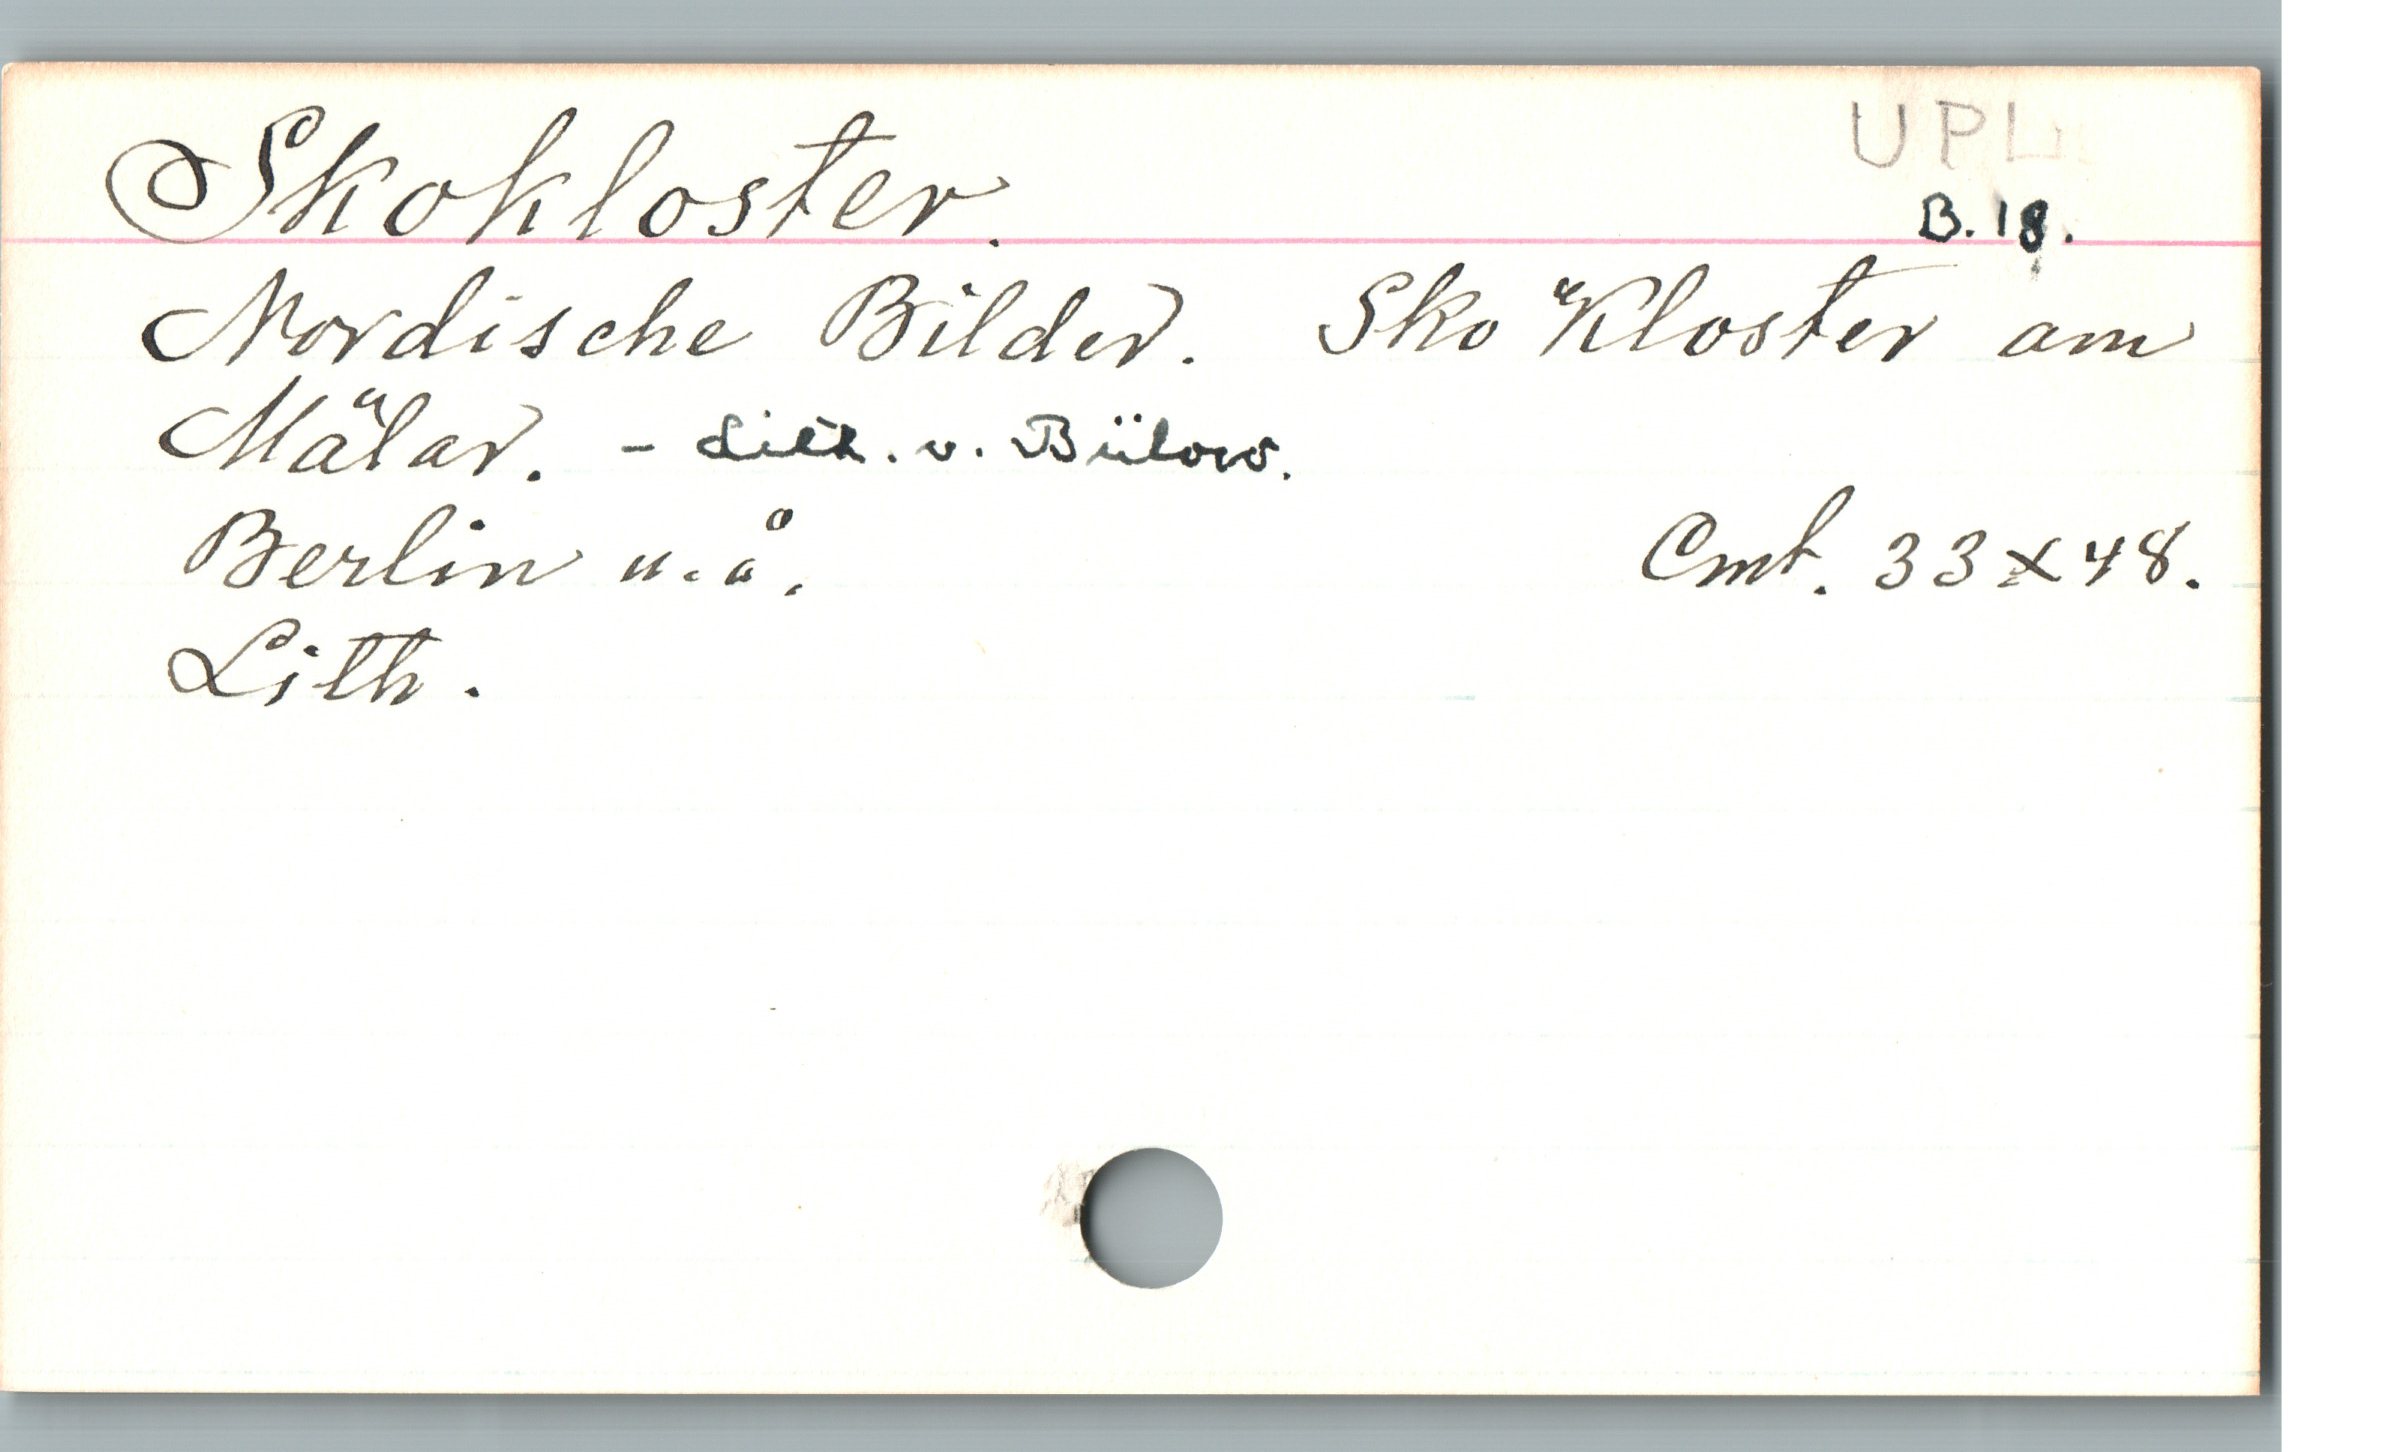 Skokloster.
UPL
B. 18.
Nordische Bilder. Sko Kloster am
Mälar. - Lith. v. Bülow.
Berlin u.å.
Cmt. 33 x 48.
Lith.